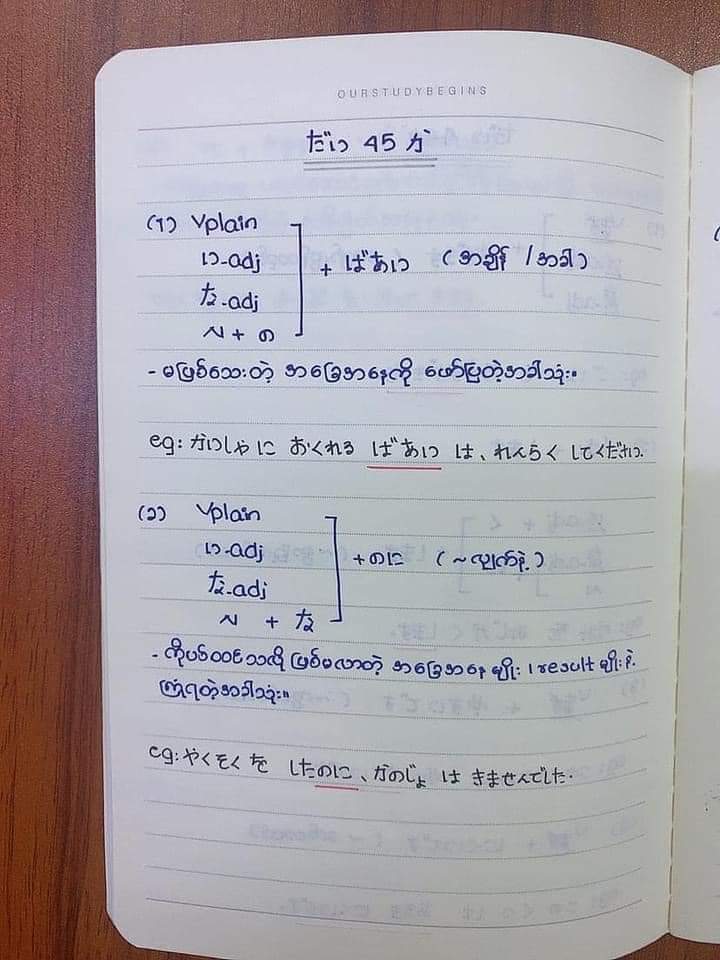 OURSTUDYBEGINS
だい 45 か
(၁) Vplain
い-adj
な-adj
N + の
+ ばあい (အချိန် / အခါ)
- မဖြစ်သေးတဲ့ အခြေအနေကို ဖော်ပြတဲ့အခါသုံး။
eg: かいしゃに おくれる ばあい は、れんらく してください.
(၁) Vplain
い-adj
な-adj
N + な
+ のに (~လျှက်နဲ့)
- ကိုယ်ထင်သလို ဖြစ်မလာတဲ့ အခြေအနေမျိုး / result မျိုးနဲ့
ကြုံရတဲ့အခါသုံး။
eg: やくそく を したのに、かのじょ は きませんでした.